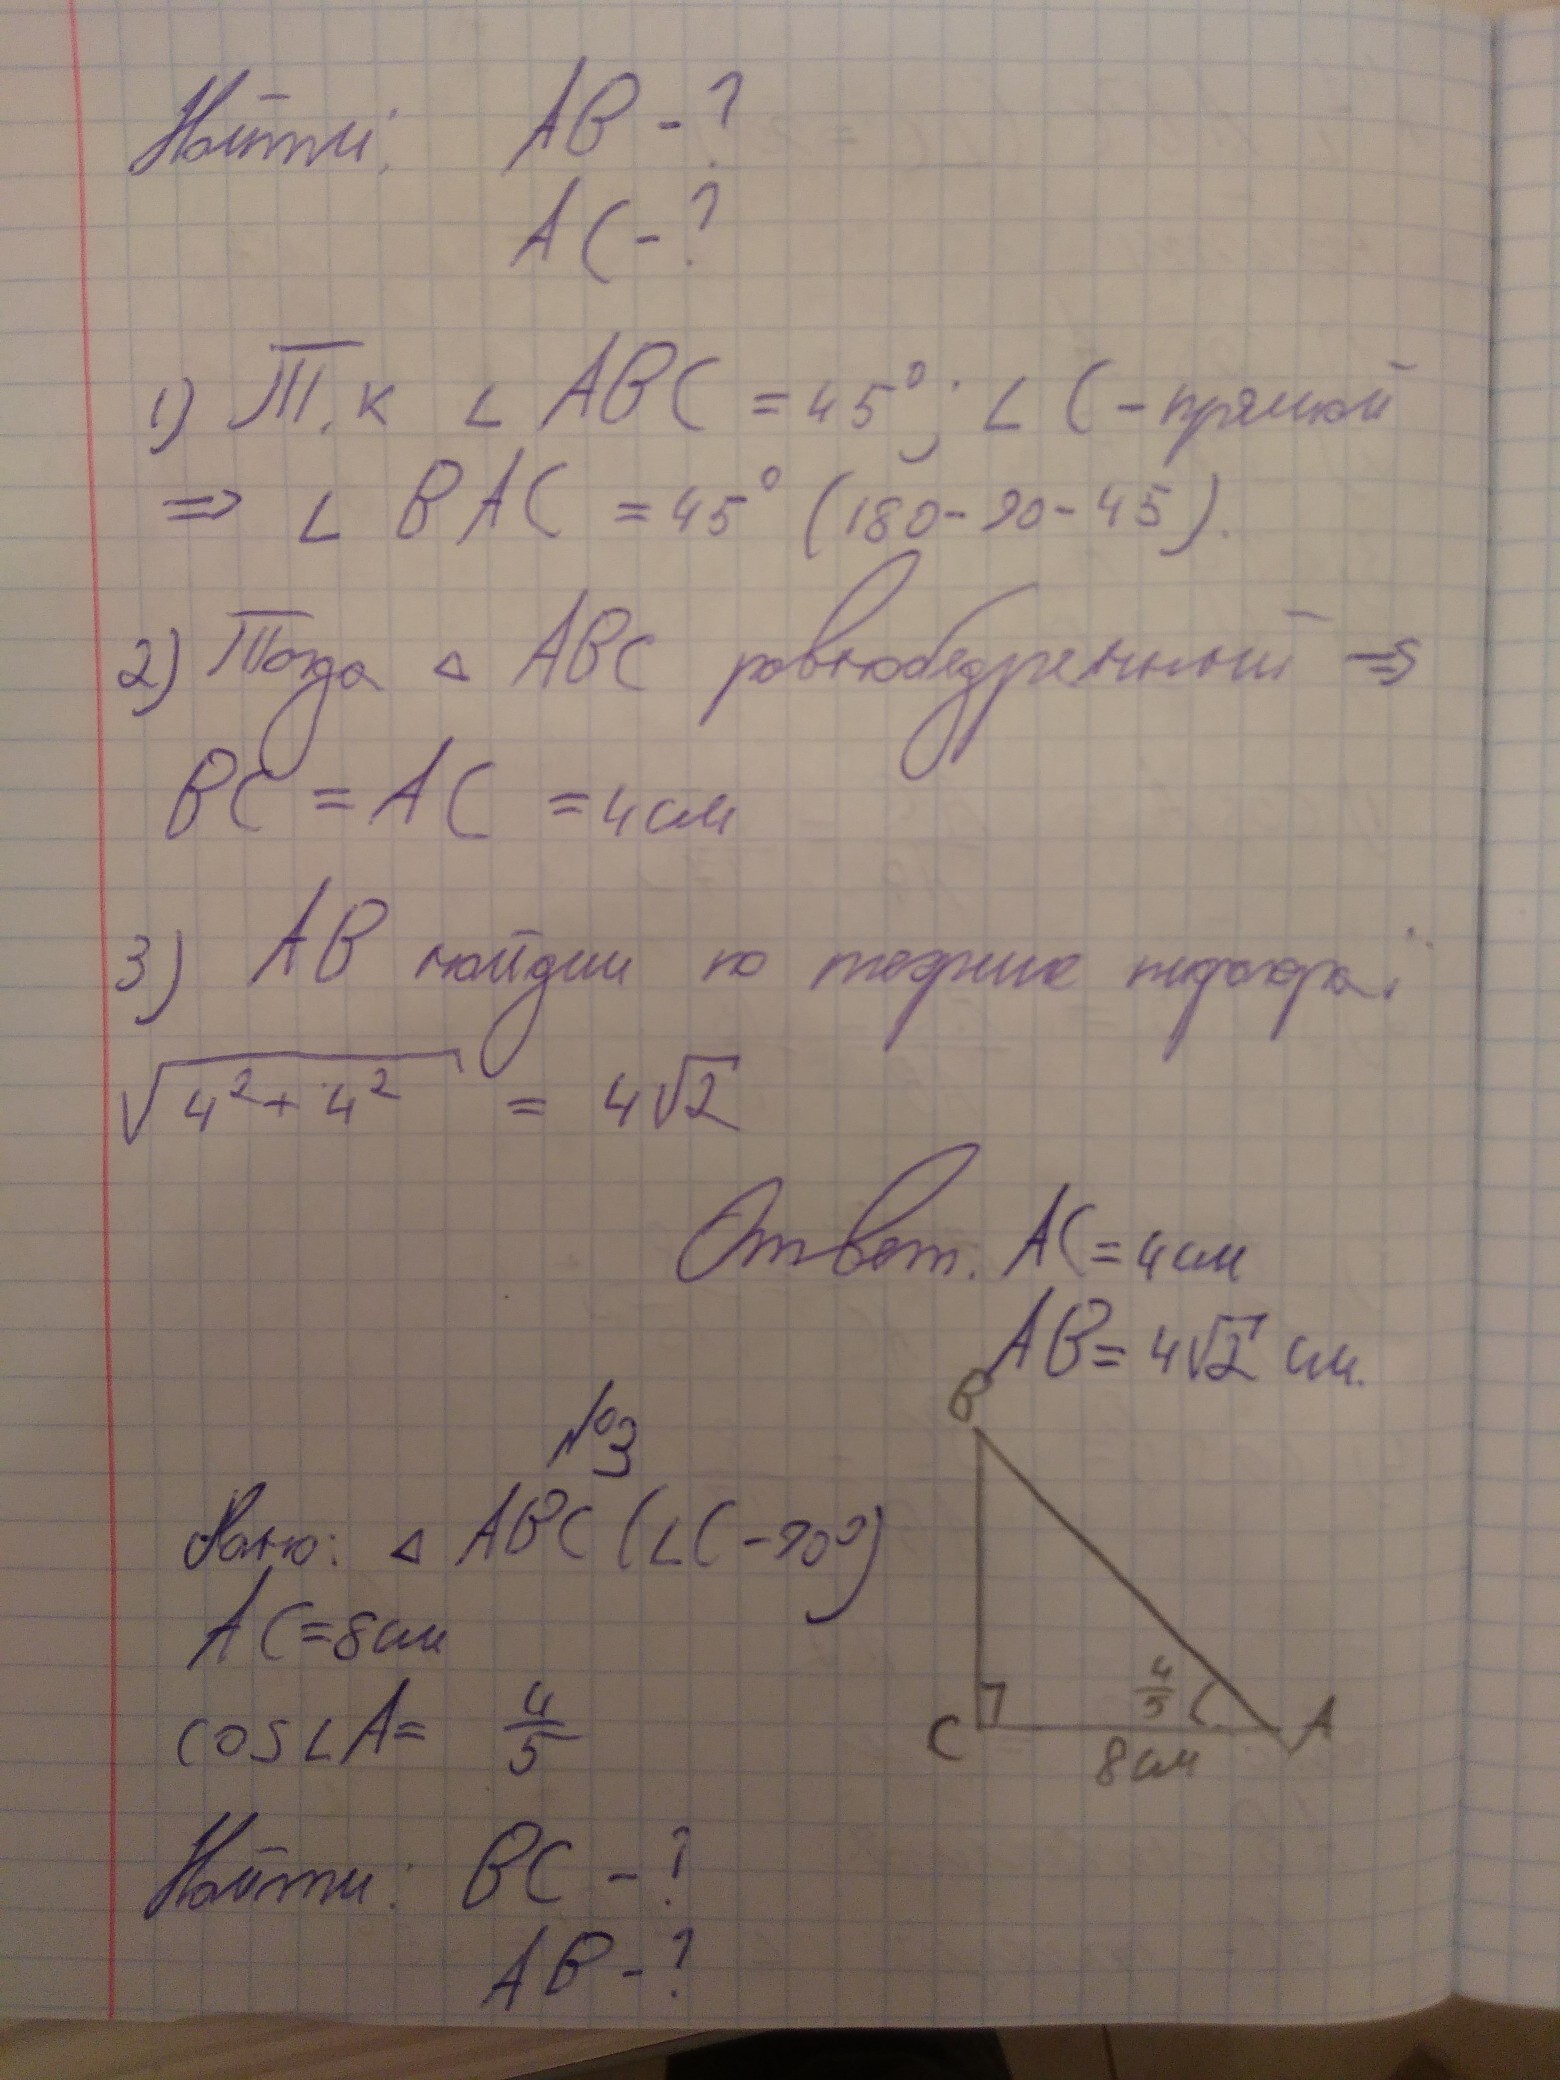 Найти: AB - ?
AC - ?
1) Т.к ∠ ABC = 45°; ∠ C - прямой
⇒ ∠ BAC = 45° (180 - 90 - 45).
2) Тогда △ ABC равнобедренный ⇒
BC = AC = 4 см
3) AB найдём по теореме пифагора:
√(4² + 4²) = 4√2
Ответ. AC = 4 см
AB = 4√2 см.
№3
Дано: △ ABC (∠C - 90°)
AC = 8 см
cos∠A = 4/5
Найти: BC - ?
AB - ?
B
4/5
C
A
8 см